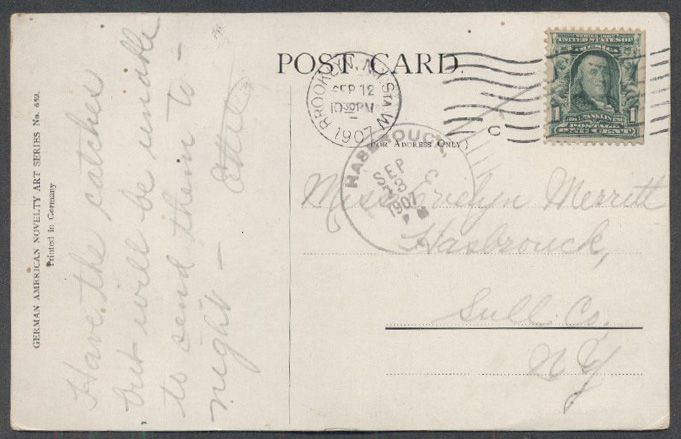 POST CARD.
BROOKLYN, N.Y. STA. W.
SEP 12
10 30 PM
1907
C
UNITED STATES OF AMERICA
FRANKLIN
1 1
POSTAGE
ONE CENT
FOR ADDRESS ONLY
HASBROUCK,
SEP
13
1907
P M
Miss Evelyn Merritt
Hasbrouck,
Sull. Co.
N Y
Have the catches
but will be unable
to send them to-
night —
GERMAN AMERICAN NOVELTY ART SERIES No. 489.
Printed in Germany